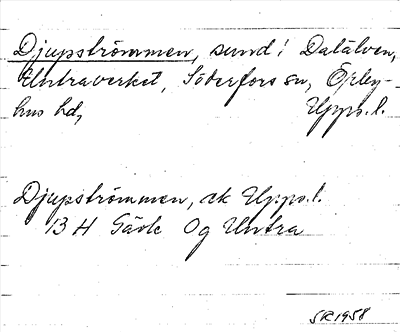 Djupströmmen, sund i Dalälven,
Untraverket, Söderfors sn, Örby-
hus hd, Upps. l.
Djupströmmen, ek Upps. l.
13 H Gävle Og Untra
SR 1958